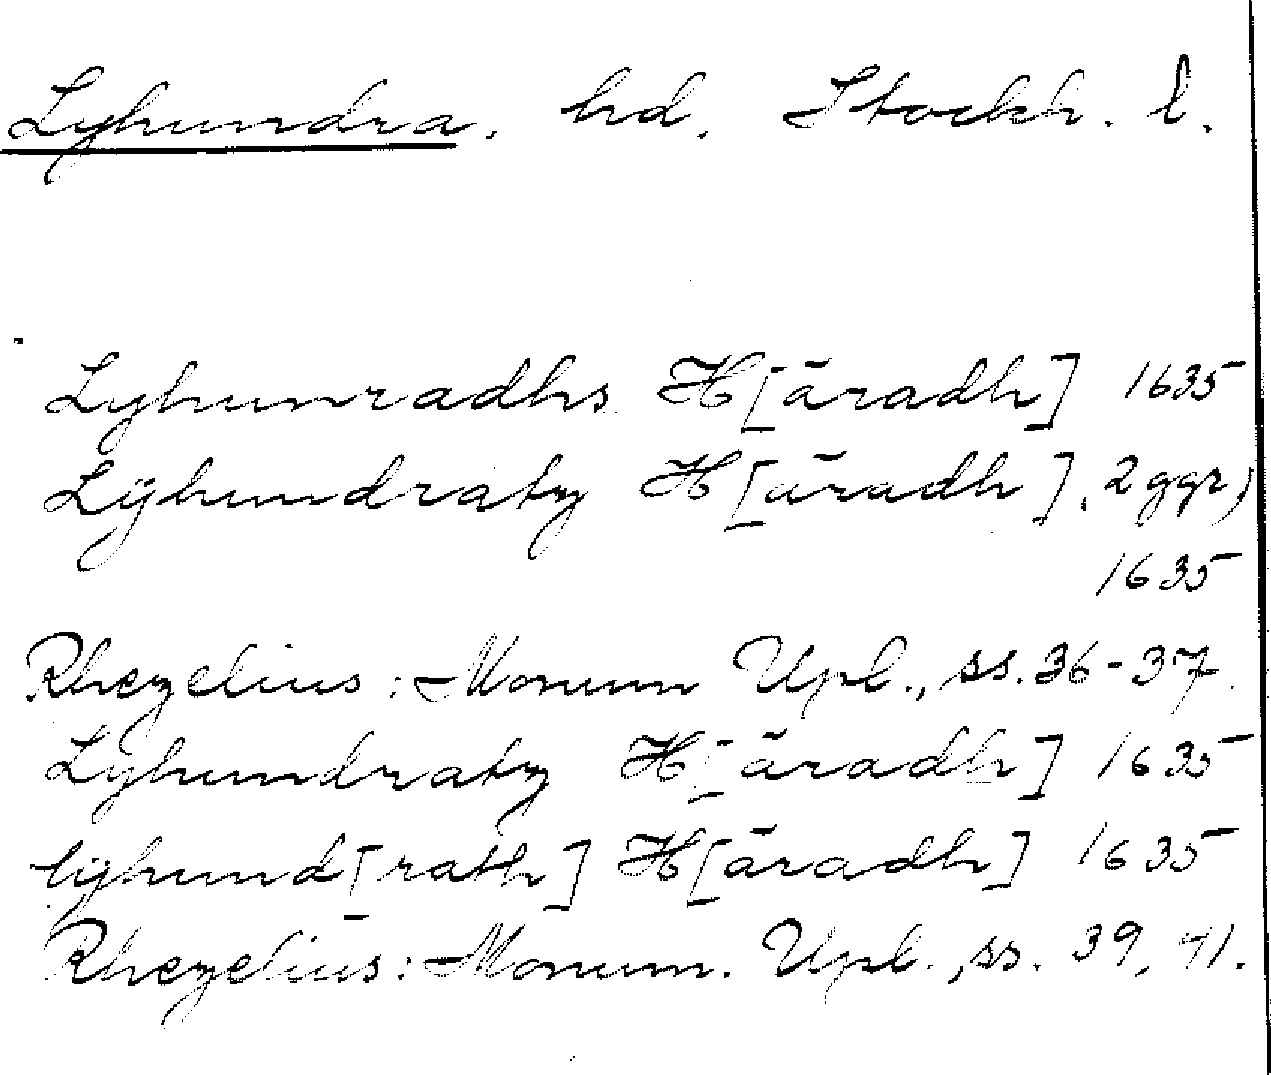 Lyhundra. hd. Stockh. l.
Lyhunradhs H[äradh] 1635
Lÿhundratz H[äradh], 2 ggr,
1635
Rhezelius: Monum Upl., ss. 36-37.
Lyhundratz H[äradh] 1635
lÿhund[rath] H[äradh] 1635
Rhezelius: Monum. Upl., ss. 39, 41.